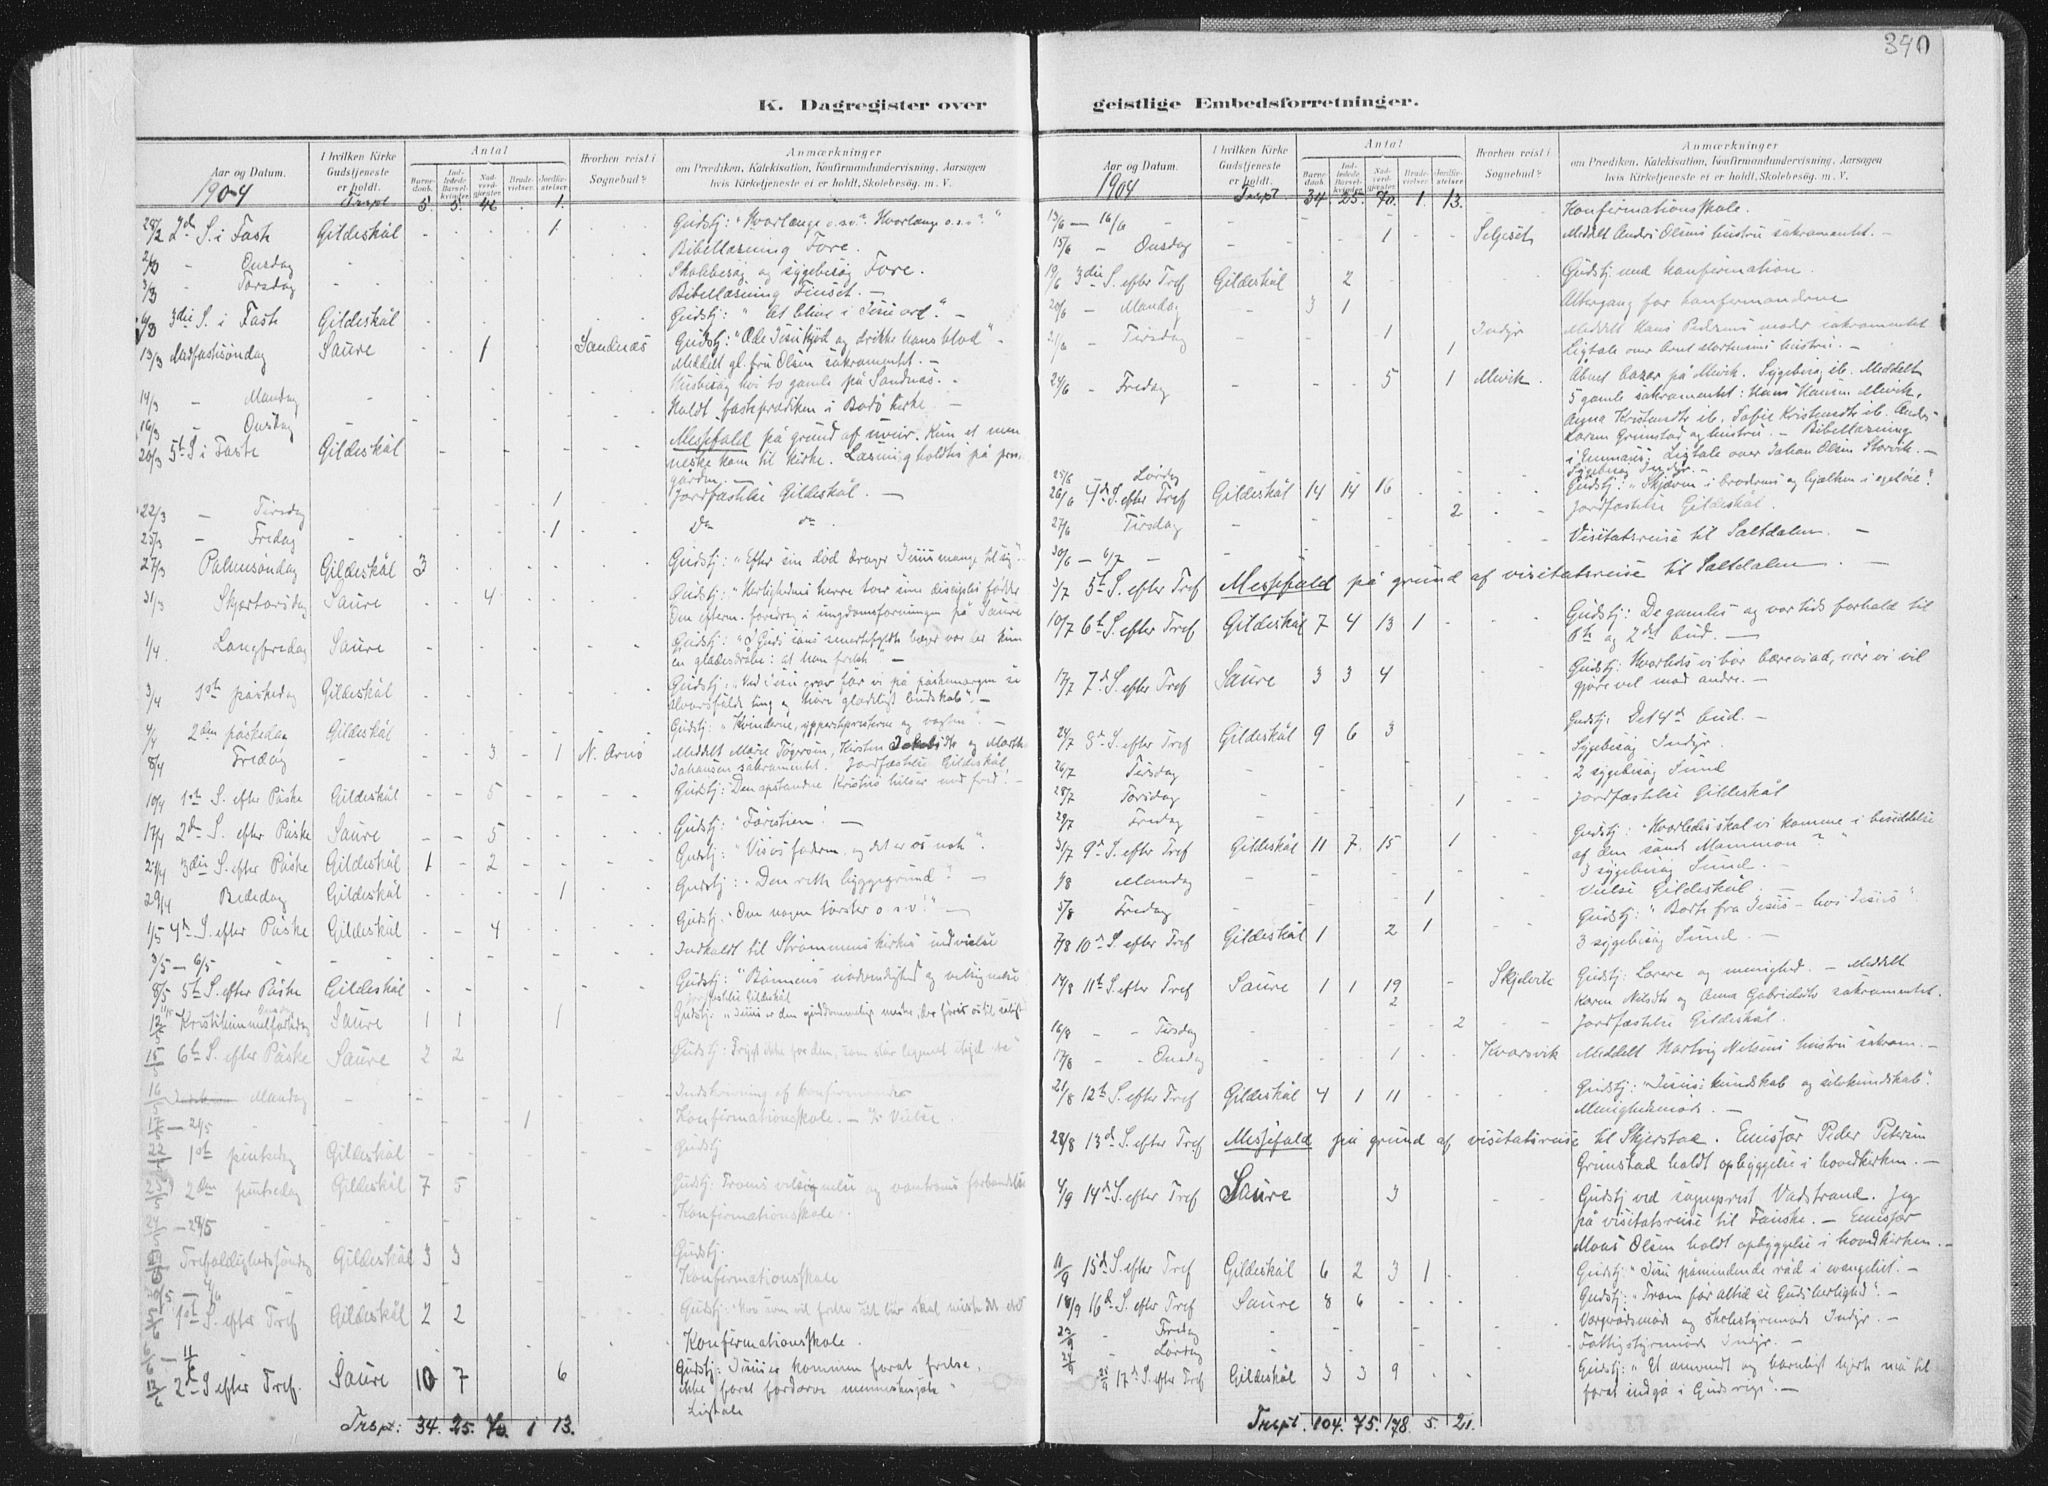 390
K. Dagregister over geistlige Embedsforretninger.
Aar og Datum.
I hvilken Kirke Gudstjeneste er holdt.
Antal
Barnedaab.
Indledede Barselkvinder.
Nadverdgjester.
Brudevielser.
Jordfæstelser
Hvorhen reist i Sognebud?
Anmærkninger
om Prædiken, Katekisation, Konfirmandundervisning, Aarsagen
hvis Kirketjeneste ei er holdt, Skolebesøg. m. V.
1904 Trspt. 5. 5. 46 . 1.
28/2 2den S. i Fast Gildeskål - - - - 1 Gudstj: "Hvorlænge o.s.v. Hvorlænge o.s.v."
Bibellæsning Fore.
2/3 - Onsdag Skolebesøg og sygebesøg Fore.
3/3 - Torsdag Bibellæsning Finset. -
6/3 3die S. i Fast Gildeskål Gudstj: " At blive i Jesu ord". -
13/3 Midfastsöndag Saure - - 1 Sandnæs Gudstj: "Æde Jesu kjöd og drikke hans blod" -
Meddelt gl. fru Olsen sakramentet. -
14/3 - Mandag Husbesøg hos to gamle på Sandnæs. -
16/3 - Onsdag Holdt fasteprædiken i Bodø kirke -
20/3 5te S i Faste Gildeskål Messefald på grund af uveir. Kun et men
neske kom til kirke. Læsning holdtes på præste
gården. -
22/3 - Tirsdag - - - - 1 Jordfæstelse Gildeskål. -
25/3 - Fredag - - - - 1 Do do.
27/3 Palmesøndag Gildeskål 3 Gudstj: "Efter sin død drager Jesus mange til sig".
31/3 Skjærtorsdag Saure - - 4 Gudstj: "Herlighedens herre toer sine disciples fødder
Om efterm. foredrag i ungdomsforeningen på Saure
1/4 Langfredag Saure Gudstj: "I Guds søns smertefyldte bæger var der kun
en glædesdråbe: at han frelste" -
3/4 1ste påskedag Gildeskål Gudstj: "Ved Jesu grav får vi på påskemorgen se
alvorsfulde ting og höre glædeligt budskab". -
4/4 2den påskedag Gildeskål Gudstj: "Kvinderne, ypperstepresterne og vagten". -
8/4 Fredag - - - 3 - 1 N. Arnö Meddelt Marie Tøgersen, Kirsten Jakobsdtr og Marth.
Johansen sakramentet. Jordfæstelse Gildeskål
10/4 1ste S. efter Påske Gildeskål - - 5 Gudstj: Den opstandne Kristus hilser med fred! -
17/4 2den S. efter Påske Saure - - 5 Gudstj: "Förstien! -
24/4 3die S. efter Påske Gildeskål 1 - 2 Gudstj: "Vis os faderen, og det er os nok".
29/4 Bededag Gildeskål - - - - 1 Gudstj: "Den rette byggegrund". -
1/5 4de S. efter Påske Gildeskål - - 4 Gudstj: "Om nogen tørster o.s.v." -
3/5 - 6/5 Indkaldt til Strømmens kirkes indvielse
8/5 5te S. efter Påske Gildeskål Gudstj: "Bønnens nødvendighed og velsignelse
Jordfæstelse Gildeskål
12/5 Kristihimmelfartsdag Saure 1 1 1 Gudstj: "Jesus er den guddommelige mester, der fører os til salighed
15/5 6te S. efter Påske Saure 2 2 Gudstj: Frygt ikke for dem, som slår legemet ihjel etc"
16/5 Mandag Indskrivning af konfirmander
17/5 - 21/5 1 Konfirmationsskole. - Vielse.
22/5 1ste pintsedag Gildeskål Gudstj
23/5 2den pintsedag Gildeskål 7 5 Gudstj: Troens velsignelse og vantroens forbandelse
24/5 - 28/5 Konfirmationsskole.
Trefoldighedssöndag Gildeskål 3 3 Gudstj.
- 4/6 Konfirmationsskole
5/6 1ste S. efter Tref Gildeskål 2 2 Gudstj: "Hvo som vil frelse sit liv skal miste det etc"
6/6 - 11/6 Konfirmationsskole.
12/6 2den S efter Tref. Saure 10 7 6 Gudstj: Jesus er kommen forat frelse,
ikke forat fordærve menneskesjæle"
Ligtale
Trspt: 34. 25. 70. 1 13.
Aar og Datum.
I hvilken Kirke Gudstjeneste er holdt.
Antal
Barnedaab.
Indledede Barselkvinder.
Nadverdgjester.
Brudevielser.
Jordfæstelser
Hvorhen reist i Sognebud?
Anmærkninger
om Prædiken, Katekisation, Konfirmandundervisning, Aarsagen
hvis Kirketjeneste ei er holdt, Skolebesøg. m. V.
1904 Trspt 34 25. 70. 1. 13.
13/6 - 16/6 Konfirmationsskole.
15/6 - Onsdag - - - 1 Selseset Meddelt Andrs Olsens hustru sakramentet. -
19/6 3die S. efter Tref Gildeskål 2 Gudstj med konfirmation.
20/6 - Mandag 3 1 Altergang for konfirmanderne
21/6 - Tirsdag 1 1 Indyr Meddelt Hans Pedersens moder sakramentet
Ligtale over Arnt Mortensens hustru. -
24/6 - Fredag 5 1 Mevik Åbnet bazar på Mevik. Sygebesøg ib. Meddelt
5 gamle sakramentet: Hans Hansen Mevik,
Anna Kristensdtr ib, Sofie Kristensdtr ib. Anders
Larsen Grimstad og hustru. - Bibellæsning
i Emmaus. Ligtale over Johan Olsen Storvik. -
25/6 Lördag Sygebesøg Indyr. -
26/6 4de S. efter Tref Gildeskål 14 14 16 Gudstj: "Skjæven i broderens og bjælken i eget öie".
27/6 Tirsdag 2 Jordfæstelse Gildeskål.
30/6 - 6/7 - Visitatsreise til Saltdalen. -
3/7 5te S. efter Tref Messefald på grund af visitatsreise til Saltdalen. -
10/7 6te S. efter Tref Gildeskål 7 4 13 1 Gudstj: De gamles og vor tids forhold til
6te og 2det bud. -
17/7 7de S. efter Tref Saure 3 3 4 Gudstj: Hvorledes vi bör bære os ad, når vi vil
gjöre vel mod andre. -
24/7 8de S. efter Tref Gildeskål 9 6 3 Gudstj: Det 4de bud. -
26/7 Tirsdag Sygebesøg Indyr.
28/7 Torsdag 2 sygebesøg Sund
29/7 Fredag 1 Jordfæstelse Gildeskål
31/7 9de S. efter Tref Gildeskål 11 7. 15 1 Gudstj: "Hvorledes skal vi komme i besiddelse
af den sande Mammon"?
1/8 Mandag 3 sygebesøg Sund. -
5/8 Fredag 1 Vielse Gildeskål.
7/8 10de S. efter Tref Gildeskål 1 2 1 Gudstj: "Borte fra Jesus - hos Jesus".
3 sygebesøg Sund. -
14/8 11te S. efter Tref Saure 1 1 19 2 Skjelvik Gudstj: Lærere og menighed. - Meddelt
Karen Nilsdtr og Anna Gabrielsdtr sakramentet.
16/8 - - Tirsdag 2 Jordfæstelse Gildeskål.
17/8 - - Onsdag 1 Kvarsvik Meddelt Hartvig Nilsens hustru sakram. -
21/8 12te S. efter Tref Gildeskål 4 1 11 Gudstj: "Jesuskundskab og selvkundskab".
Menighedsmøde. -
28/8 13de S. efter Tref Messefald på grund af visitatsreise til Skjerstad. Emissær Peder Petersen
Grimstad holdt opbyggelse i hovedkirken. -
4/9 14de S. efter Tref Saure 3 Gudstj ved sogneprest Vadstrand. Jeg
på visitatsreise til Fauske. - Emissær
Mons Olsen holdt opbyggelse i hovedkirken. -
11/9 15de S. efter Tref Gildeskål 6 2 3 1 Gudstj: "Jesu påmindende råd i evangeliet. -
18/9 16de S. efter Tref Saure 8 6 Gudstj: "Troen får altid se Guds herlighed". -
23/9 - Fredag Værgerådsmøde og skolestyremøde Indyr. -
24/9 - Lördag Fattigstyremøde Indyr. -
25/9 17de S. efter Tref Gildeskål 3 3 9 Gudstj: "Et omvendt og barnligt hjerte må til
forat indgå i Guds rige". -
Trspt. 104. 75. 178. 5. 21.